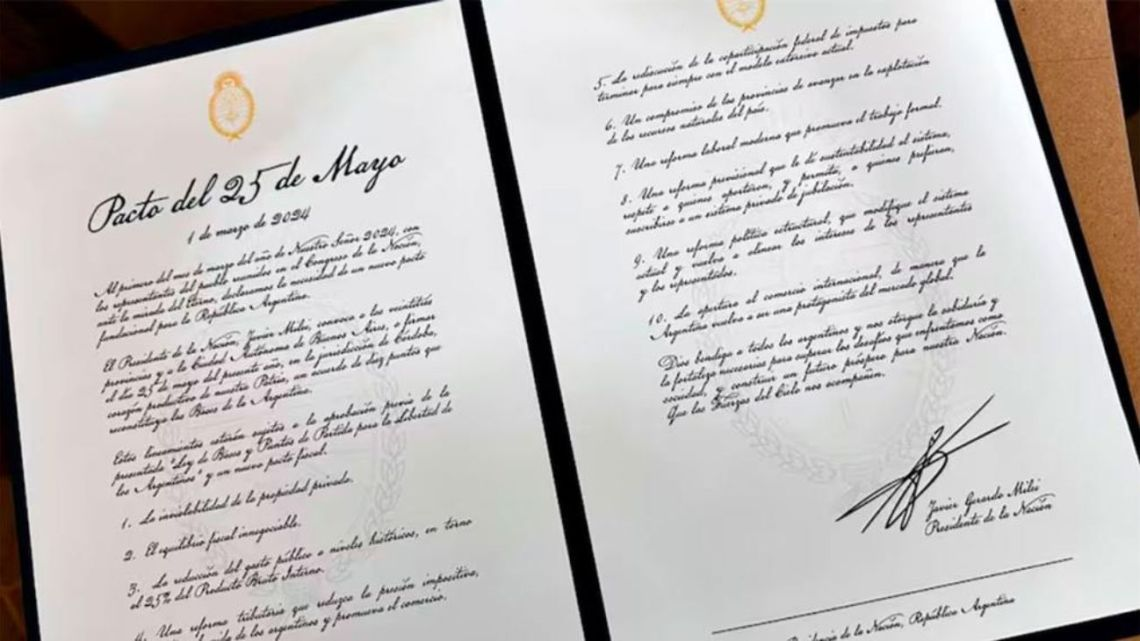 Pacto del 25 de Mayo
1 de marzo de 2024
Al primero del mes de marzo del año de Nuestro Señor 2024, con
los representantes del pueblo reunidos en el Congreso de la Nación,
ante la mirada del Eterno, declaramos la necesidad de un nuevo pacto
fundacional para la República Argentina.
El Presidente de la Nación, Javier Milei, convoca a las veintitrés
provincias y a la Ciudad Autónoma de Buenos Aires, a firmar
el día 25 de mayo del presente año, en la jurisdicción de Córdoba,
corazón productivo de nuestra Patria, un acuerdo de diez puntos que
reconstituya las Bases de la Argentina.
Estos lineamientos estarán sujetos a la aprobación previa de la
presentada "Ley de Bases y Puntos de Partida para la Libertad de
los Argentinos" y un nuevo pacto fiscal.
1. La inviolabilidad de la propiedad privada.
2. El equilibrio fiscal innegociable.
3. La reducción del gasto público a niveles históricos, en torno
al 25% del Producto Bruto Interno.
4. Una reforma tributaria que reduzca la presión impositiva,
la vida de los argentinos y promueva el comercio.
5. La rediscusión de la coparticipación federal de impuestos para
terminar para siempre con el modelo extorsivo actual.
6. Un compromiso de las provincias de avanzar en la explotación
de los recursos naturales del país.
7. Una reforma laboral moderna que promueva el trabajo formal.
8. Una reforma previsional que le dé sustentabilidad al sistema,
respete a quienes aportaron, y permita, a quienes prefieran,
suscribirse a un sistema privado de jubilación.
9. Una reforma política estructural, que modifique el sistema
actual y vuelva a alinear los intereses de los representantes
y los representados.
10. La apertura al comercio internacional, de manera que la
Argentina vuelva a ser una protagonista del mercado global.
Dios bendiga a todos los argentinos y nos otorgue la sabiduría y
la fortaleza necesarias para superar los desafíos que enfrentamos como
sociedad, y construir un futuro próspero para nuestra Nación.
Que las Fuerzas del Cielo nos acompañen.
Javier Gerardo Milei
Presidente de la Nación
de la Nación, República Argentina